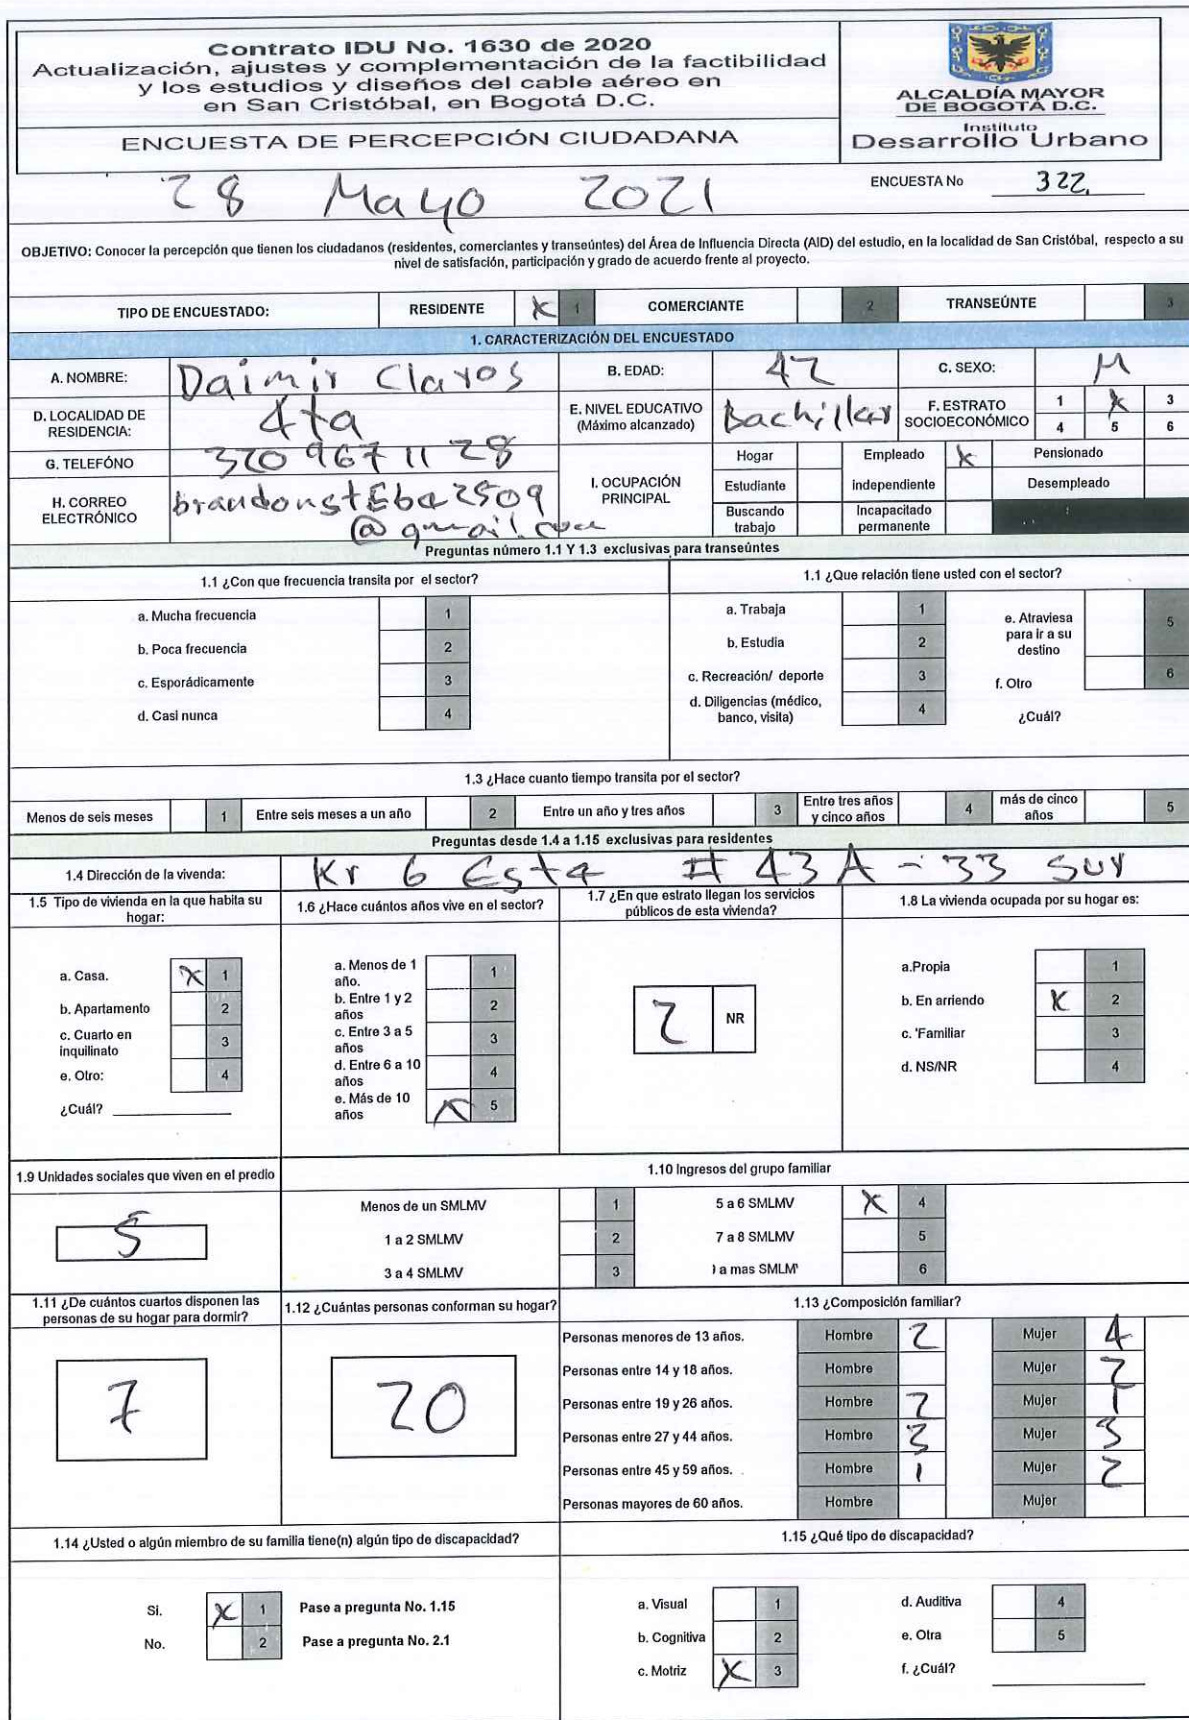 Contrato IDU No. 1630 de 2020
Actualización, ajustes y complementación de la factibilidad
y los estudios y diseños del cable aéreo en
en San Cristóbal, en Bogotá D.C.
ENCUESTA DE PERCEPCIÓN CIUDADANA
ALCALDÍA MAYOR
DE BOGOTÁ D.C.
Instituto
Desarrollo Urbano
28 Mayo 2021
ENCUESTA No 322
OBJETIVO: Conocer la percepción que tienen los ciudadanos (residentes, comerciantes y transeúntes) del Área de Influencia Directa (AID) del estudio, en la localidad de San Cristóbal, respecto a su
nivel de satisfacción, participación y grado de acuerdo frente al proyecto.
TIPO DE ENCUESTADO: RESIDENTE X 1 COMERCIANTE 2 TRANSEÚNTE 3
1. CARACTERIZACIÓN DEL ENCUESTADO
A. NOMBRE: Daimir Claros B. EDAD: 42 C. SEXO: M
D. LOCALIDAD DE RESIDENCIA: 4ta E. NIVEL EDUCATIVO (Máximo alcanzado) Bachiller F. ESTRATO SOCIOECONÓMICO 1 X 3
4 5 6
G. TELEFÓNO 320 967 11 28
H. CORREO ELECTRÓNICO
I. OCUPACIÓN PRINCIPAL
Hogar Empleado X Pensionado
Estudiante independiente Desempleado
Buscando trabajo Incapacitado permanente
Preguntas número 1.1 Y 1.3 exclusivas para transeúntes
1.1 ¿Con que frecuencia transita por el sector?
a. Mucha frecuencia 1
b. Poca frecuencia 2
c. Esporádicamente 3
d. Casi nunca 4
1.1 ¿Que relación tiene usted con el sector?
a. Trabaja 1
b. Estudia 2
c. Recreación/ deporte 3
d. Diligencias (médico, banco, visita) 4
e. Atraviesa para ir a su destino 5
f. Otro 6
¿Cuál?
1.3 ¿Hace cuanto tiempo transita por el sector?
Menos de seis meses 1 Entre seis meses a un año 2 Entre un año y tres años 3 Entre tres años y cinco años 4 más de cinco años 5
Preguntas desde 1.4 a 1.15 exclusivas para residentes
1.4 Dirección de la vivenda: Kr 6 Este # 43 A - 33 Sur
1.5 Tipo de vivienda en la que habita su hogar:
a. Casa. X 1
b. Apartamento 2
c. Cuarto en inquilinato 3
e. Otro: 4
¿Cuál?
1.6 ¿Hace cuántos años vive en el sector?
a. Menos de 1 año. 1
b. Entre 1 y 2 años 2
c. Entre 3 a 5 años 3
d. Entre 6 a 10 años 4
e. Más de 10 años X 5
1.7 ¿En que estrato llegan los servicios públicos de esta vivienda?
2 NR
1.8 La vivienda ocupada por su hogar es:
a.Propia 1
b. En arriendo X 2
c. 'Familiar 3
d. NS/NR 4
1.9 Unidades sociales que viven en el predio
5
1.10 Ingresos del grupo familiar
Menos de un SMLMV 1 5 a 6 SMLMV X 4
1 a 2 SMLMV 2 7 a 8 SMLMV 5
3 a 4 SMLMV 3 a mas SMLM 6
1.11 ¿De cuántos cuartos disponen las personas de su hogar para dormir?
7
1.12 ¿Cuántas personas conforman su hogar?
20
1.13 ¿Composición familiar?
Personas menores de 13 años. Hombre 2 Mujer 4
Personas entre 14 y 18 años. Hombre Mujer 2
Personas entre 19 y 26 años. Hombre 2 Mujer 1
Personas entre 27 y 44 años. Hombre 3 Mujer 3
Personas entre 45 y 59 años. Hombre 1 Mujer 2
Personas mayores de 60 años. Hombre Mujer
1.14 ¿Usted o algún miembro de su familia tiene(n) algún tipo de discapacidad?
Si. X 1 Pase a pregunta No. 1.15
No. 2 Pase a pregunta No. 2.1
1.15 ¿Qué tipo de discapacidad?
a. Visual 1
b. Cognitiva 2
c. Motriz X 3
d. Auditiva 4
e. Otra 5
f. ¿Cuál?